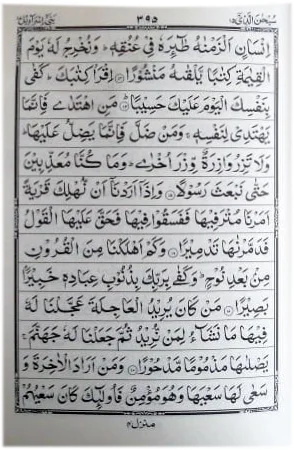 سبحٰن الذی ۱۵ ۳۹۵ بنی اسرآءیل ۱۷
اِنْسَانٍ اَلْزَمْنٰهُ طٰٓئِرَهٗ فِیْ عُنُقِهٖ ؕ وَنُخْرِجُ لَهٗ یَوْمَ
الْقِیٰمَةِ كِتٰبًا یَّلْقٰىهُ مَنْشُوْرًا اِقْرَاْ كِتٰبَكَ ؕ كَفٰی
بِنَفْسِكَ الْیَوْمَ عَلَیْكَ حَسِیْبًا ؕ مَنِ اهْتَدٰی فَاِنَّمَا
یَهْتَدِیْ لِنَفْسِهٖ ۚ وَمَنْ ضَلَّ فَاِنَّمَا یَضِلُّ عَلَیْهَا ؕ
وَلَا تَزِرُ وَازِرَةٌ وِّزْرَ اُخْرٰی ؕ وَمَا كُنَّا مُعَذِّبِیْنَ
حَتّٰی نَبْعَثَ رَسُوْلًا وَاِذَاۤ اَرَدْنَاۤ اَنْ نُّهْلِكَ قَرْیَةً
اَمَرْنَا مُتْرَفِیْهَا فَفَسَقُوْا فِیْهَا فَحَقَّ عَلَیْهَا الْقَوْلُ
فَدَمَّرْنٰهَا تَدْمِیْرًا وَكَمْ اَهْلَكْنَا مِنَ الْقُرُوْنِ
مِنْۢ بَعْدِ نُوْحٍ ؕ وَكَفٰی بِرَبِّكَ بِذُنُوْبِ عِبَادِهٖ خَبِیْرًۢا
بَصِیْرًا مَنْ كَانَ یُرِیْدُ الْعَاجِلَةَ عَجَّلْنَا لَهٗ
فِیْهَا مَا نَشَآءُ لِمَنْ نُّرِیْدُ ثُمَّ جَعَلْنَا لَهٗ جَهَنَّمَ ۚ
یَصْلٰىهَا مَذْمُوْمًا مَّدْحُوْرًا وَمَنْ اَرَادَ الْاٰخِرَةَ وَ
سَعٰی لَهَا سَعْیَهَا وَهُوَ مُؤْمِنٌ فَاُولٰٓئِكَ كَانَ سَعْیُهُمْ
منزل ۴